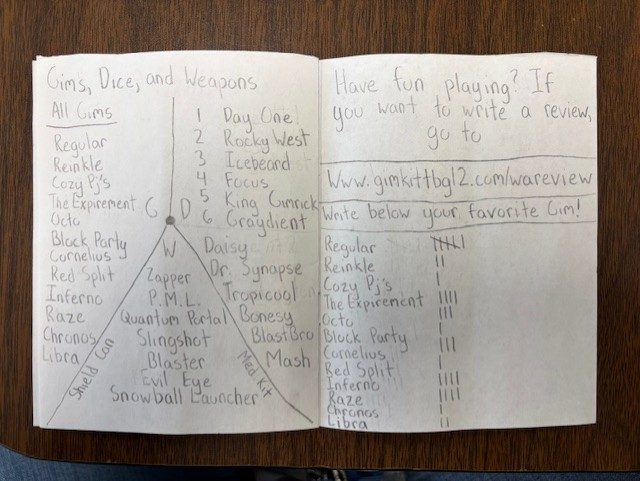 Gims, Dice, and Weapons
All Gims
Regular
Reinkle
Cozy Pj's
The Expirement
Octo
Block Party
Cornelius
Red Split
Inferno
Raze
Chronos
Libra
G
D
W
1 Day One
2 Rocky West
3 Icebeard
4 Focus
5 King Gimrick
6 Graydient
Daisy
Dr. Synapse
Tropicool
Bonesy
BlastBro
Mash
Zapper
P.M.L.
Quantum Portal
Slingshot
Blaster
Evil Eye
Snowball Launcher
Shield Can
Med Kit
Have fun playing? If
you want to write a review,
go to
Www.gimkittbgl2.com/wareview
Write below your favorite Gim!
Regular
Reinkle
Cozy Pj's
The Expirement
Octo
Block Party
Cornelius
Red Split
Inferno
Raze
Chronos
Libra